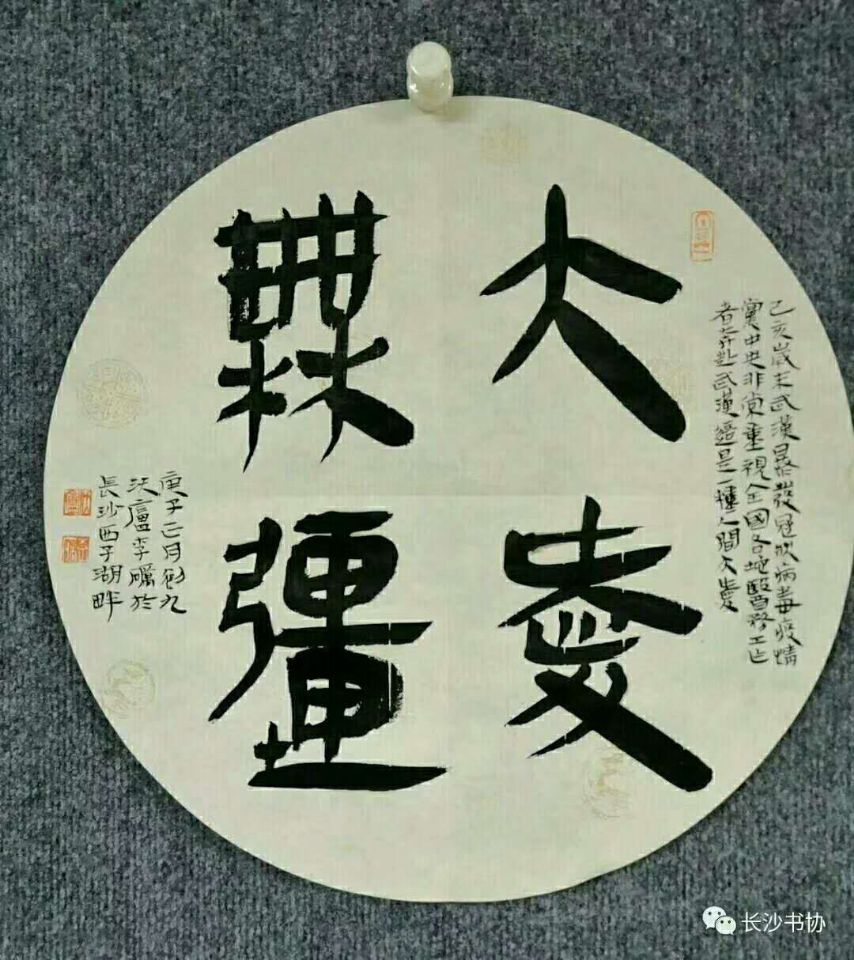 大愛
無疆
己亥歲末武漢暴發冠狀病毒疫情
黨中央非常重視全國各地醫務工作
者奔赴武漢這是一種人間大愛
庚子正月初九
廬李礪於
長沙西子湖畔
长沙书协